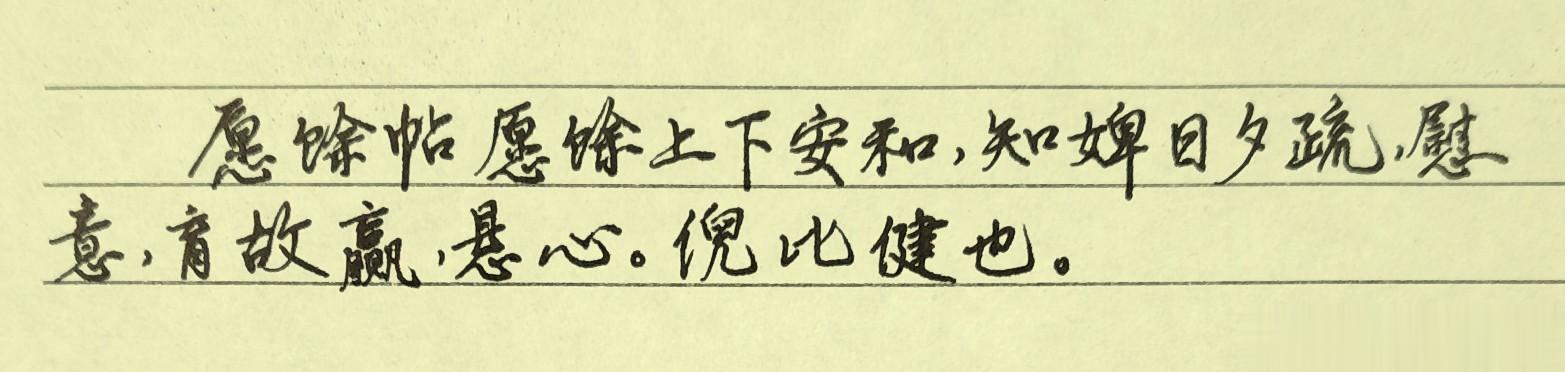 愿馀帖愿馀上下安和，知婢日夕疏，慰
意，育故赢，悬心。倪比健也。